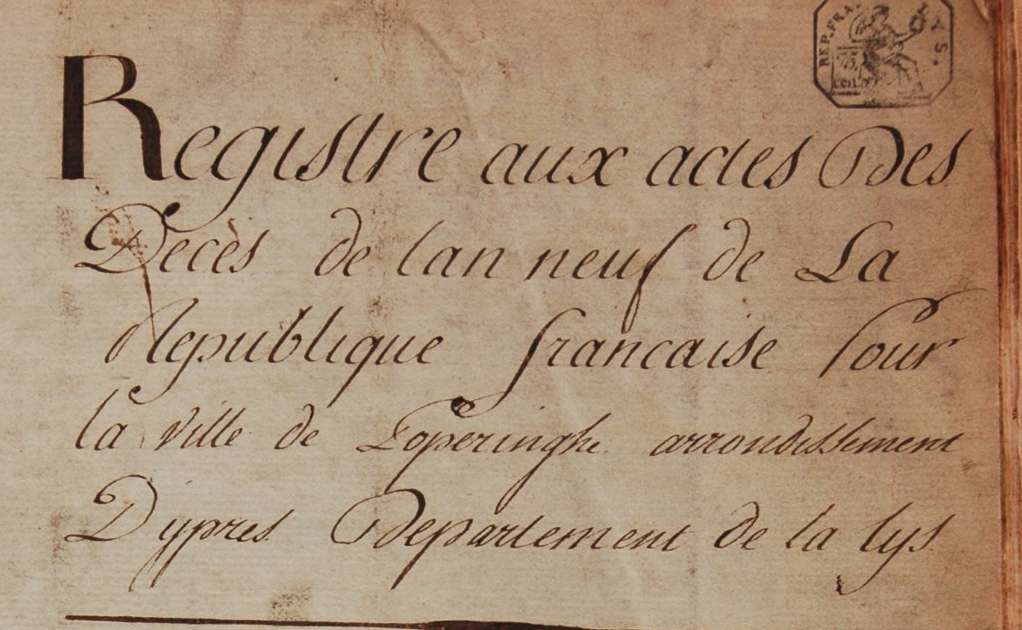 REP. FRA. LYS.
75.
CENT.
Registre aux actes Des
Decès de lan neuf de La
Republique francaise Pour
la ville de Poperinghe arrondissement
Dypres Departement de la lys